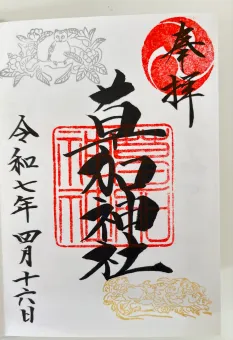 奉拝
草加神社
令和七年四月十六日